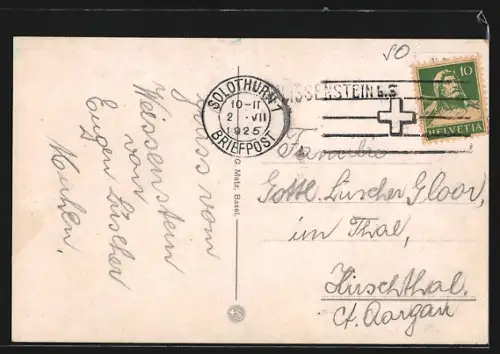 Gruss vom
Weissenstein
von
Eugen Lüscher
Muhen.
G. Metz, Basel.
SOLOTHURN 1
10-11
2 . VII
1925
BRIEFPOST
WEISSENSTEIN b. S
50
10
HELVETIA
Familie
Gottl. Lüscher Gloor,
im Thal,
Hirschthal.
Ct. Aargau